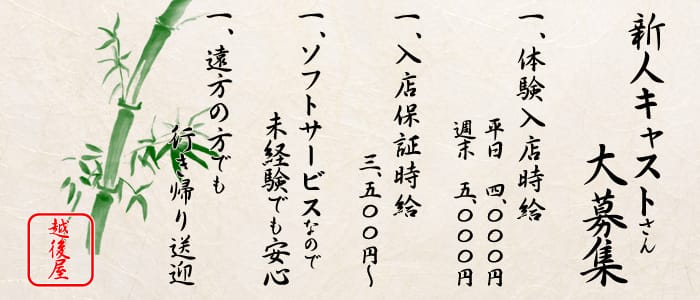 新人キャストさん
大募集
一、体験入店時給
平日 四、〇〇〇円
週末 五、〇〇〇円
一、入店保証時給
三、五〇〇円〜
一、ソフトサービスなので
未経験でも安心
一、遠方の方でも
行き帰り送迎
越後屋